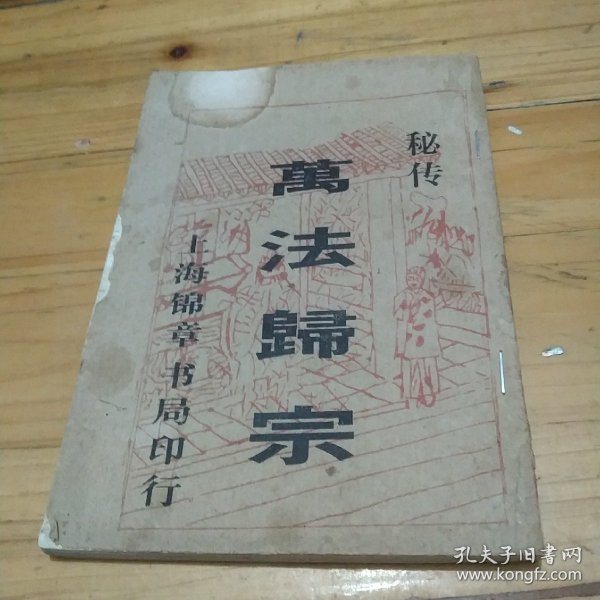 秘传
萬法歸宗
上海锦章书局印行
孔夫子旧书网
www.kongfz.com